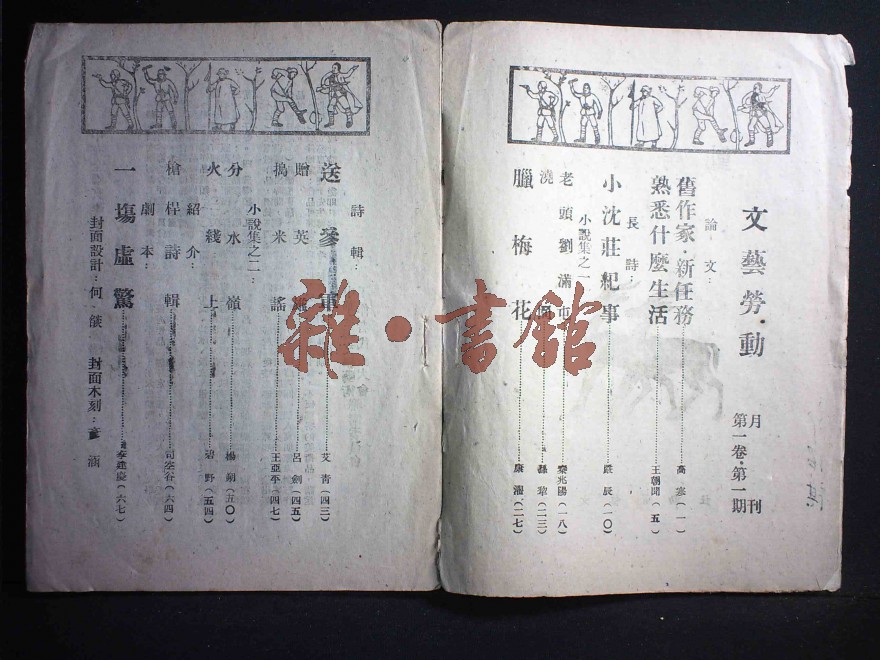 文藝勞·動
月刊
第一卷·第一期
論文：
舊作家·新任務……高寒（一）
熟悉什麼生活……王朝聞（五）
長詩：
小沈莊紀事……嚴辰（一〇）
小說集之一
老頭劉滿屯……秦兆陽（一八）
澆……孫犂（二三）
臘梅花……康濯（二七）
詩輯：
送參軍……艾青（四三）
贈英雄……呂劍（四五）
搗米謠……王亞平（四七）
小說集之二：
分水嶺……楊朔（五〇）
火綫上……碧野（五四）
紹介：
槍桿詩輯……司空谷（六四）
劇本：
一場虛驚……李建慶（六七）
封面設計：何燄
封面木刻：彥涵
雜·書館